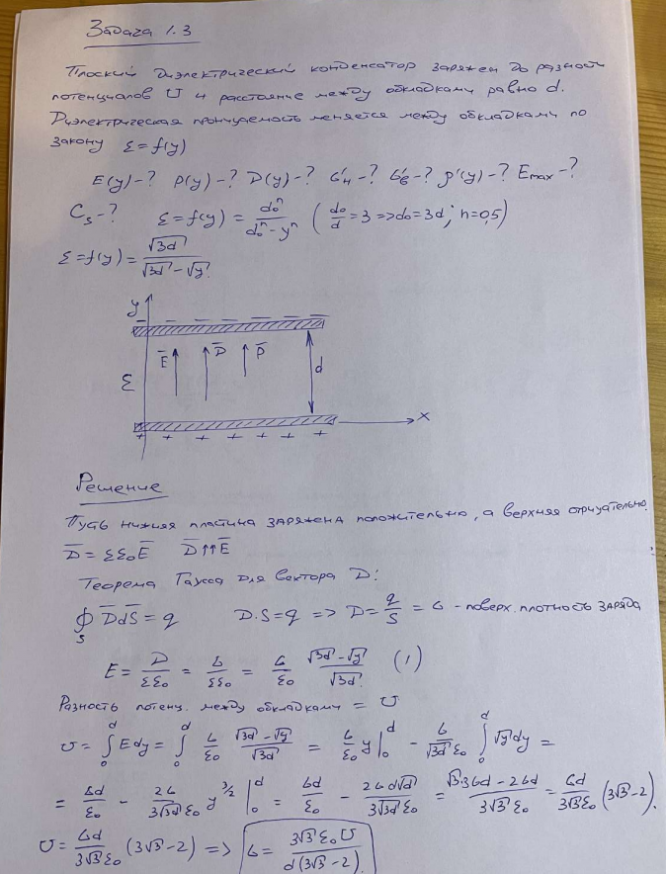 Задача 1.3
Плоский диэлектрический конденсатор заряжен до разности
потенциалов U и расстояние между обкладками равно d.
Диэлектрическая проницаемость меняется между обкладками по
закону ε = f(y)
E(y)-? P(y)-? D(y)-? σ'н-? σ'в-? ρ'(y)-? Emax-?
Cs-? ε=f(y) = d₀ⁿ/(d₀ⁿ - yⁿ) (d₀/d = 3 => d₀ = 3d; n=0,5)
ε=f(y) = √3d/(√3d - √y)
y
- - - - - - -
E D P
ε d
x
+ + + + + + +
Решение
Пусть нижняя пластина заряжена положительно, а верхняя отрицательно.
D = εε₀E D↑↑E
Теорема Гаусса для вектора D:
∮s DdS = q D·S = q => D = q/S = σ - поверх. плотность заряда
E = D/εε₀ = σ/εε₀ = σ/ε₀ (√3d - √y)/√3d (1)
Разность потенц. между обкладками = U
U = ∫₀ᵈ Edy = ∫₀ᵈ σ/ε₀ (√3d - √y)/√3d = σ/ε₀ y|₀ᵈ - σ/(√3d ε₀) ∫₀ᵈ √y dy =
= σd/ε₀ - 2σ/(3√3d ε₀) y^(3/2)|₀ᵈ = σd/ε₀ - 2σd√d/(3√3d ε₀) = (√3·3σd - 2σd)/(3√3 ε₀) = σd/(3√3 ε₀) (3√3 - 2).
U = σd/(3√3 ε₀) (3√3 - 2) => σ = 3√3 ε₀U/(d(3√3 - 2))